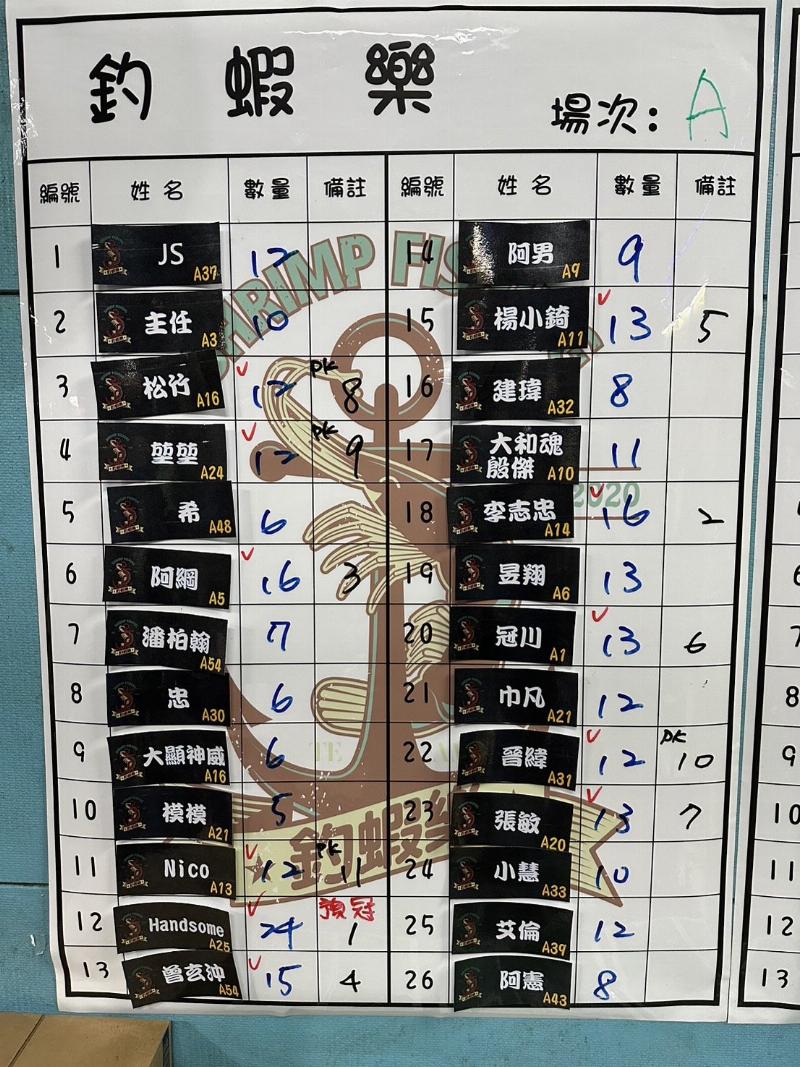 釣蝦樂
場次: A
編號 姓名 數量 備註 編號 姓名 數量 備註
1 JS A37 12 14 阿男 A9 9
2 主任 A3 10 15 楊小錡 A11 13 5
3 松竹 A16 12 PK 8 16 建瑋 A32 8
4 堃堃 A24 12 PK 9 17 大和魂 殷傑 A10 11
5 希 A48 6 18 李志忠 A14 16 2
6 阿綱 A5 16 3 19 昱翔 A6 13
7 潘柏翰 A54 7 20 冠川 A1 13 6
8 忠 A30 6 21 巾凡 A21 12
9 大顯神威 A16 6 22 晉緯 A31 12 PK 10
10 模模 A21 5 23 張敏 A20 13 7
11 Nico A13 12 PK 11 24 小慧 A33 10
12 Handsome A25 24 預冠 1 25 艾倫 A39 12
13 曾玄沖 A54 15 4 26 阿憲 A43 8
SHRIMP FIS
2020
釣蝦樂
7
8
9
10
11
12
13